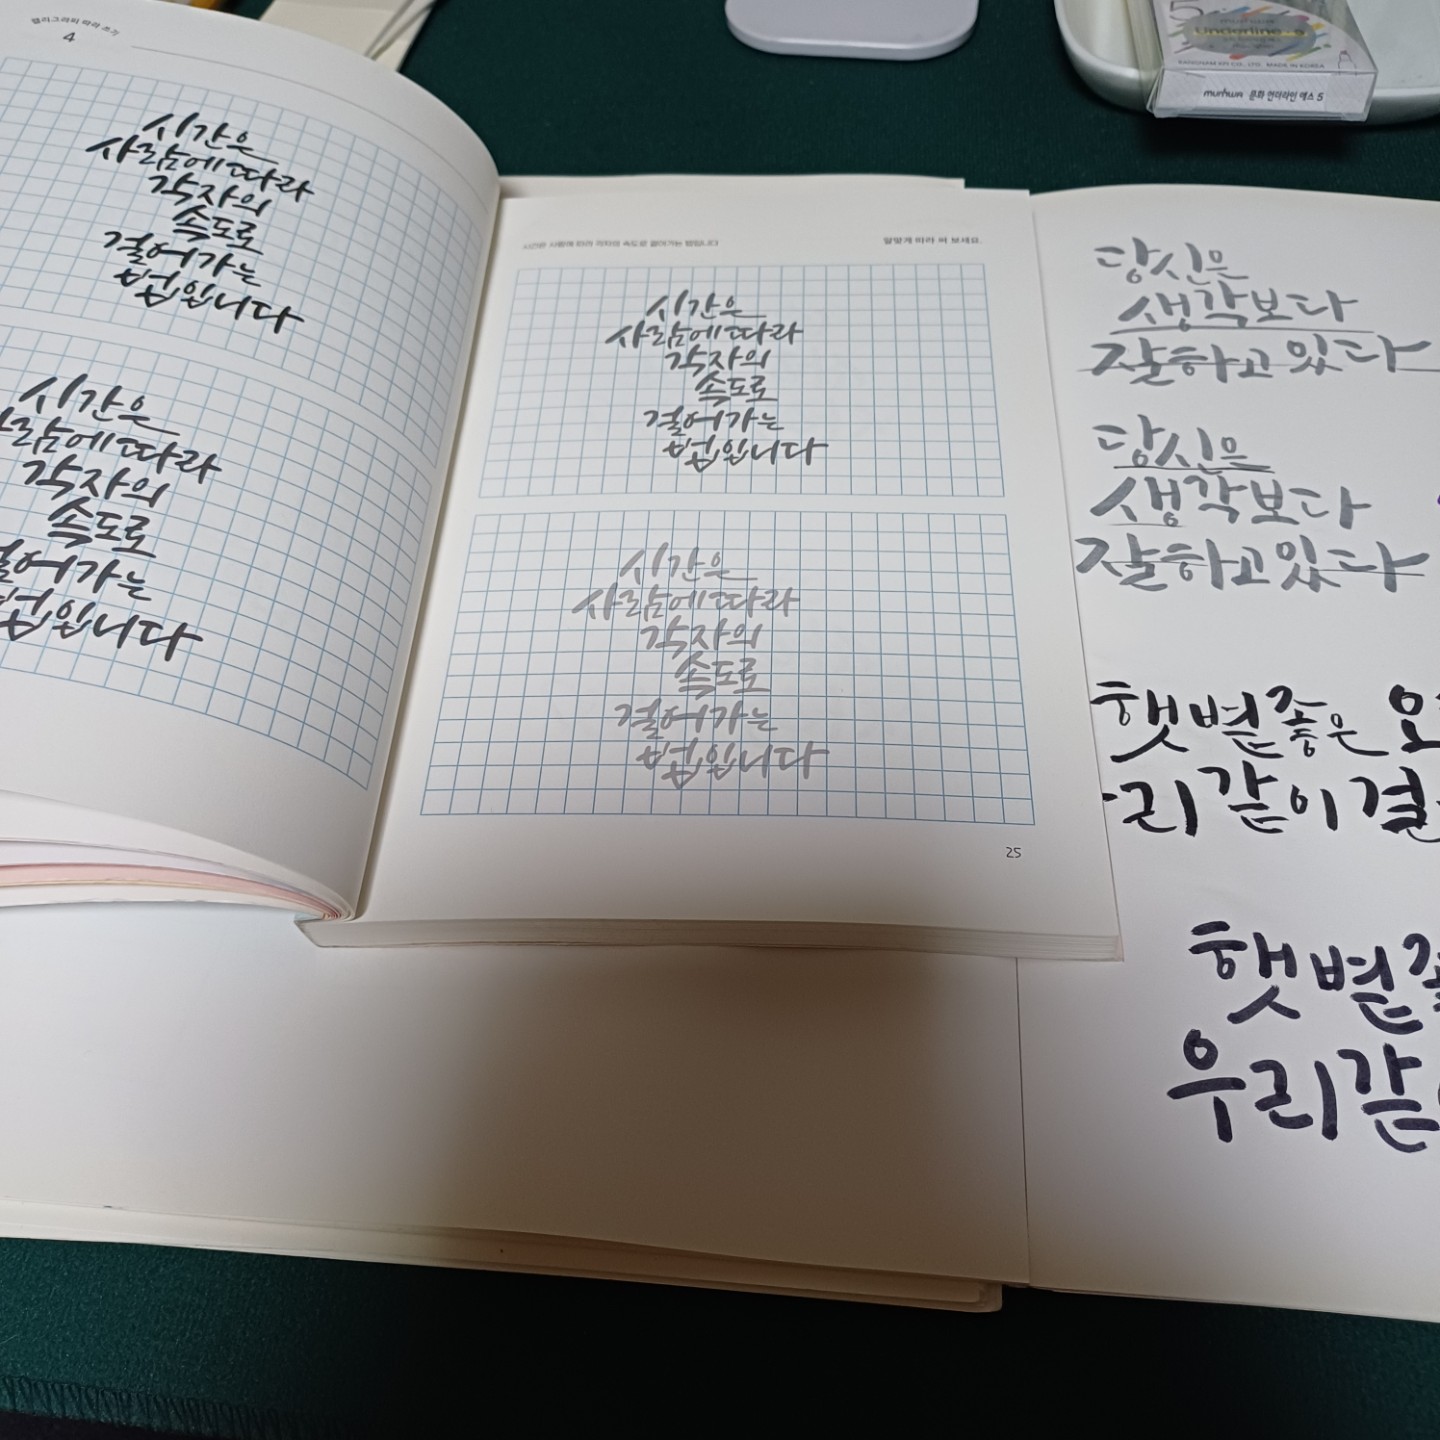 캘리그라피 따라 쓰기
4
시간은
사람에 따라
각자의
속도로
걸어가는
법입니다
시간은
사람에 따라
각자의
속도로
걸어가는
법입니다
시간은 사람에 따라 각자의 속도로 걸어가는 법입니다
알맞게 따라 써 보세요.
시간은
사람에 따라
각자의
속도로
걸어가는
법입니다
시간은
사람에 따라
각자의
속도로
걸어가는
법입니다
25
5
Underline+s
MADE IN KOREA
munhwa 문화 언더라인 에스 5
당신은
생각보다
잘하고 있다
당신은
생각보다
잘하고 있다
햇볕 좋은
리 같이
햇볕
우리 같